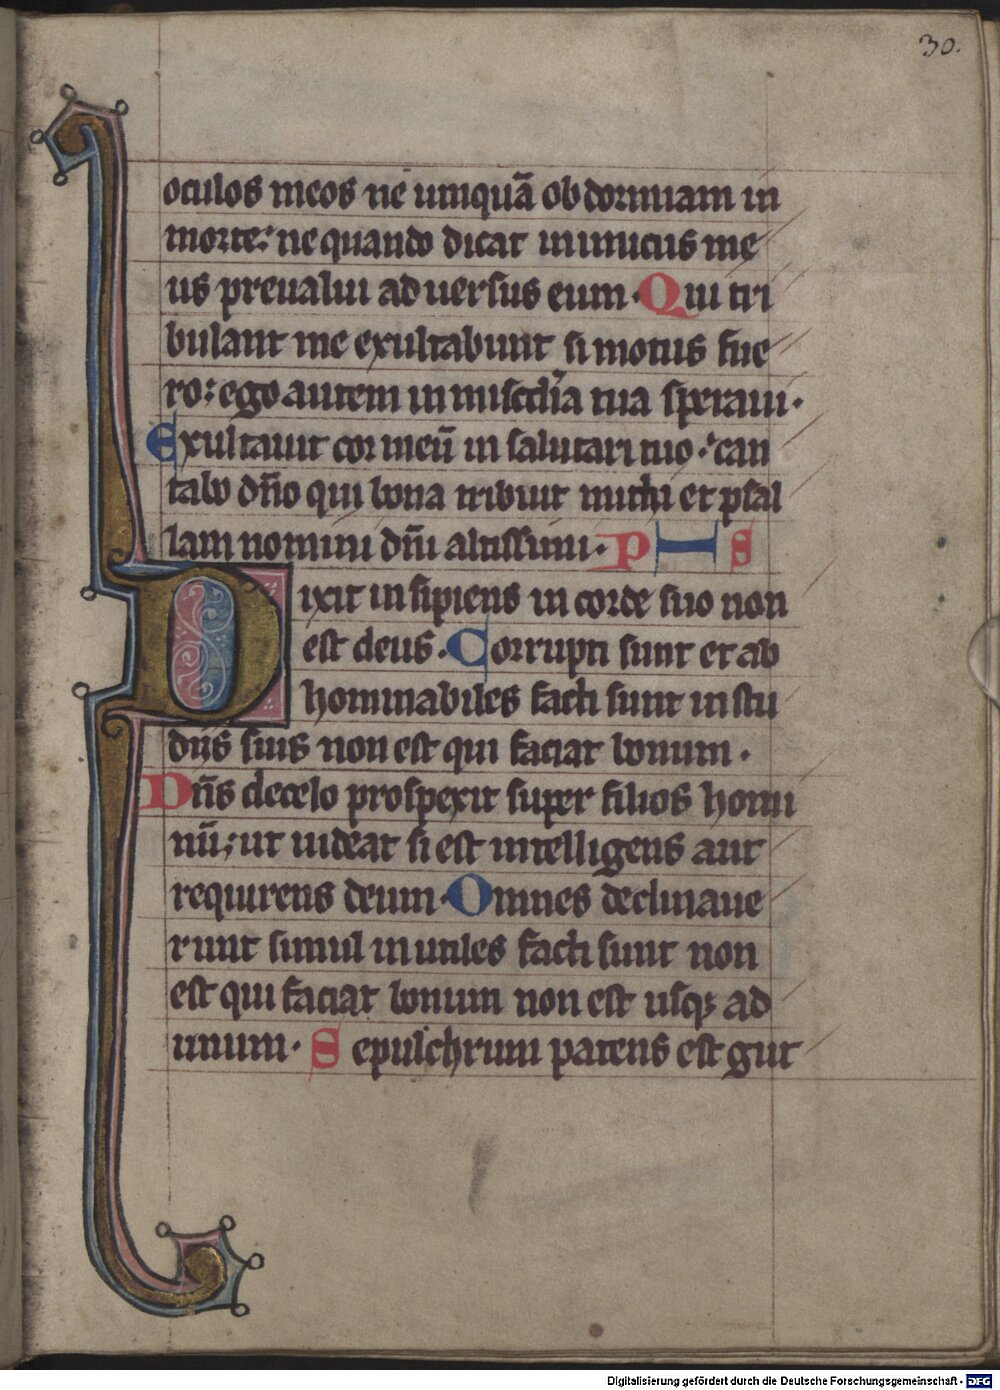 30.
oculos meos ne umquā obdormiam in
morte: ne quando dicat inimicus me
us preualui aduersus eum. Qui tri
bulant me exultabunt si motus fue
ro: ego autem in misc̄dia tua speraui.
Exultauit cor meū in salutari tuo: can
tabo dn̄o qui bona tribuit michi et psal
lam nomini dn̄i altissimi. PS
Dixit insipiens in corde suo non
est deus. Corrupti sunt et ab
hominabiles facti sunt in stu
diis suis non est qui faciat bonum.
Dn̄s de celo prospexit super filios homi
nū; ut uideat si est intelligens aut
requirens deum. Omnes declinaue
runt simul inutiles facti sunt non
est qui faciat bonum non est usq; ad
unum. Sepulchrum patens est gut
Digitalisierung gefördert durch die Deutsche Forschungsgemeinschaft - DFG